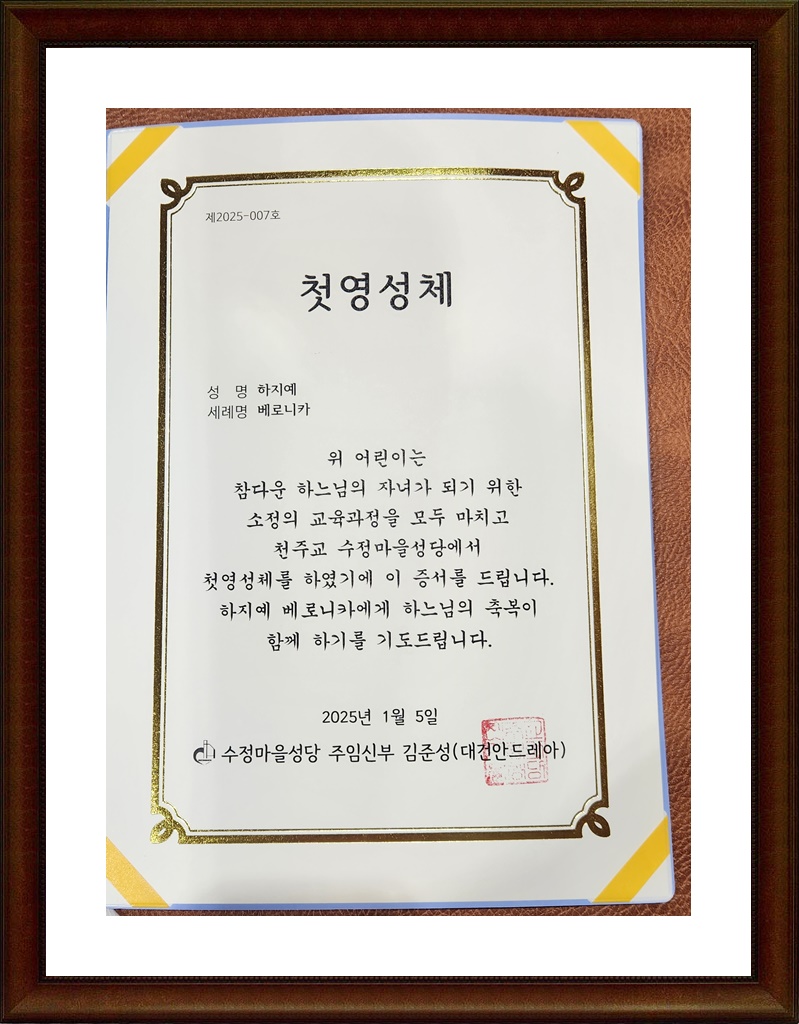 제2025-007호
첫영성체
성 명 하지예
세례명 베로니카
위 어린이는
참다운 하느님의 자녀가 되기 위한
소정의 교육과정을 모두 마치고
천주교 수정마을성당에서
첫영성체를 하였기에 이 증서를 드립니다.
하지예 베로니카에게 하느님의 축복이
함께 하기를 기도드립니다.
2025년 1월 5일
수정마을성당 주임신부 김준성(대건안드레아)